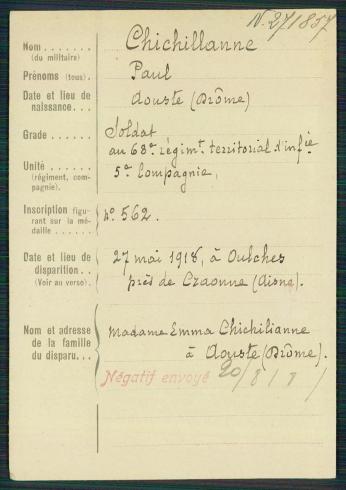 N. 271857
Nom . . . . . . . Chichillanne
(du militaire)
Prénoms (tous). Paul
Date et lieu de
naissance. . . Aouste (Drôme)
Grade . . . . . . Soldat
au 68e régimt. territorial d'infie
Unité . . . . . . 5e Compagnie,
(régiment, com-
pagnie).
Inscription figu-
rant sur la mé-
daille . . . . . . No. 562.
Date et lieu de 27 mai 1918, à Oulches
disparition. . près de Craonne (Aisne).
(Voir au verso).
Nom et adresse Madame Emma Chichilianne
de la famille
du disparu. . . à Aouste (Drôme).
Négatif envoyé 20/8/8/